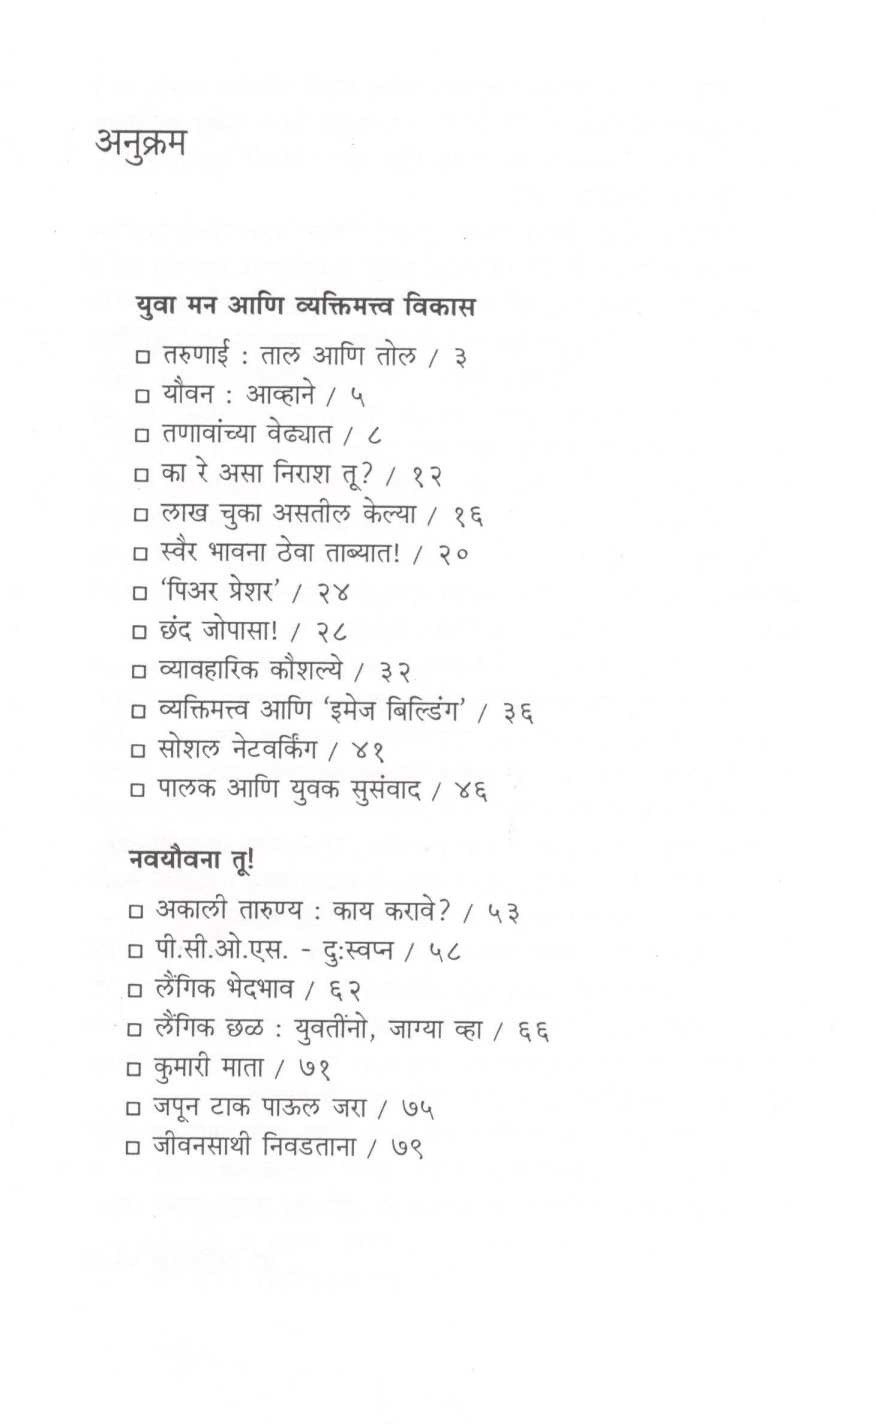 अनुक्रम
युवा मन आणि व्यक्तिमत्त्व विकास
□ तरुणाई : ताल आणि तोल / ३
□ यौवन : आव्हाने / ५
□ तणावांच्या वेढ्यात / ८
□ का रे असा निराश तू? / १२
□ लाख चुका असतील केल्या / १६
□ स्वैर भावना ठेवा ताब्यात! / २०
□ ‘पिअर प्रेशर’ / २४
□ छंद जोपासा! / २८
□ व्यावहारिक कौशल्ये / ३२
□ व्यक्तिमत्त्व आणि ‘इमेज बिल्डिंग’ / ३६
□ सोशल नेटवर्किंग / ४१
□ पालक आणि युवक सुसंवाद / ४६
नवयौवना तू!
□ अकाली तारुण्य : काय करावे? / ५३
□ पी.सी.ओ.एस. - दुःस्वप्न / ५८
□ लैंगिक भेदभाव / ६२
□ लैंगिक छळ : युवतींनो, जाग्या व्हा / ६६
□ कुमारी माता / ७१
□ जपून टाक पाऊल जरा / ७५
□ जीवनसाथी निवडताना / ७९